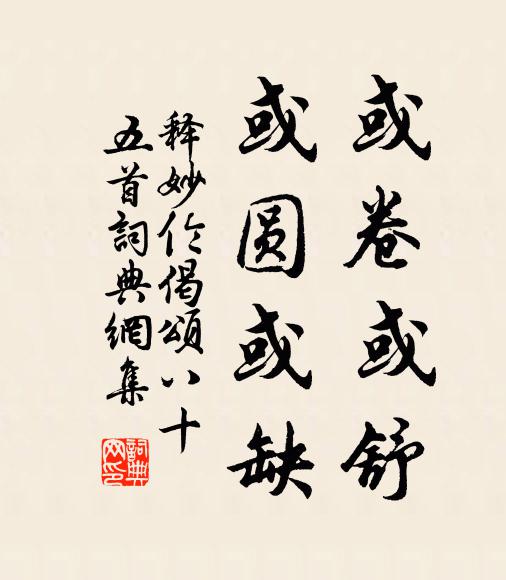 或卷或舒
或圆或缺
释妙伦偈頌八十
五首詞典網集
詞典網印